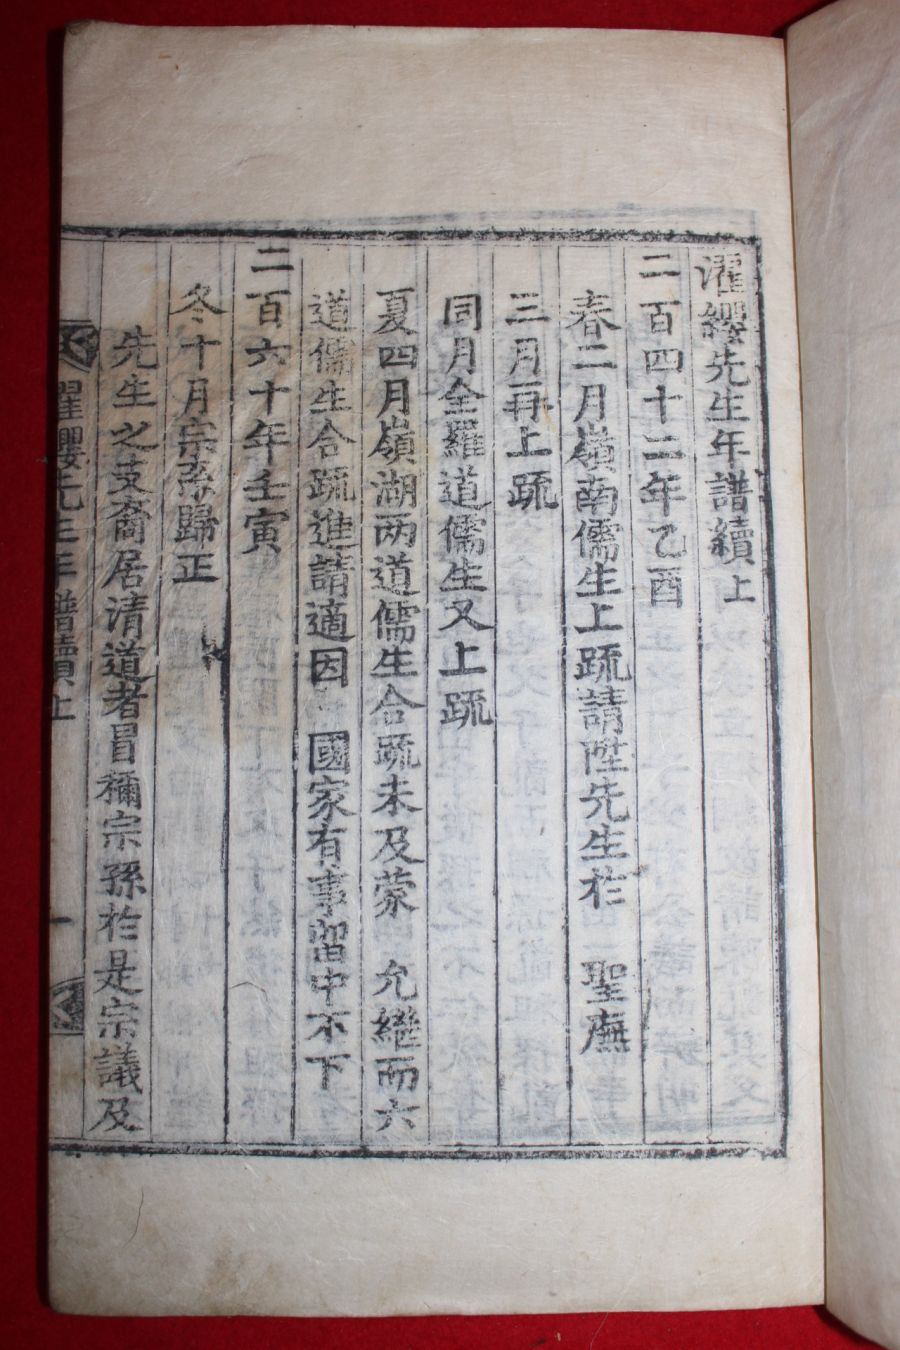 濯纓先生年譜續上
二百四十二年乙酉
春二月嶺南儒生上疏請陞先生於 聖廡
三月再上疏
同月全羅道儒生又上疏
夏四月嶺湖兩道儒生合疏未及蒙 允繼而六
道儒生合疏進請適因 國家有事留中不下
二百六十年壬寅
冬十月宗孫歸正
先生之支裔居清道者冒稱宗孫於是宗議及
濯纓先生年譜續上 一